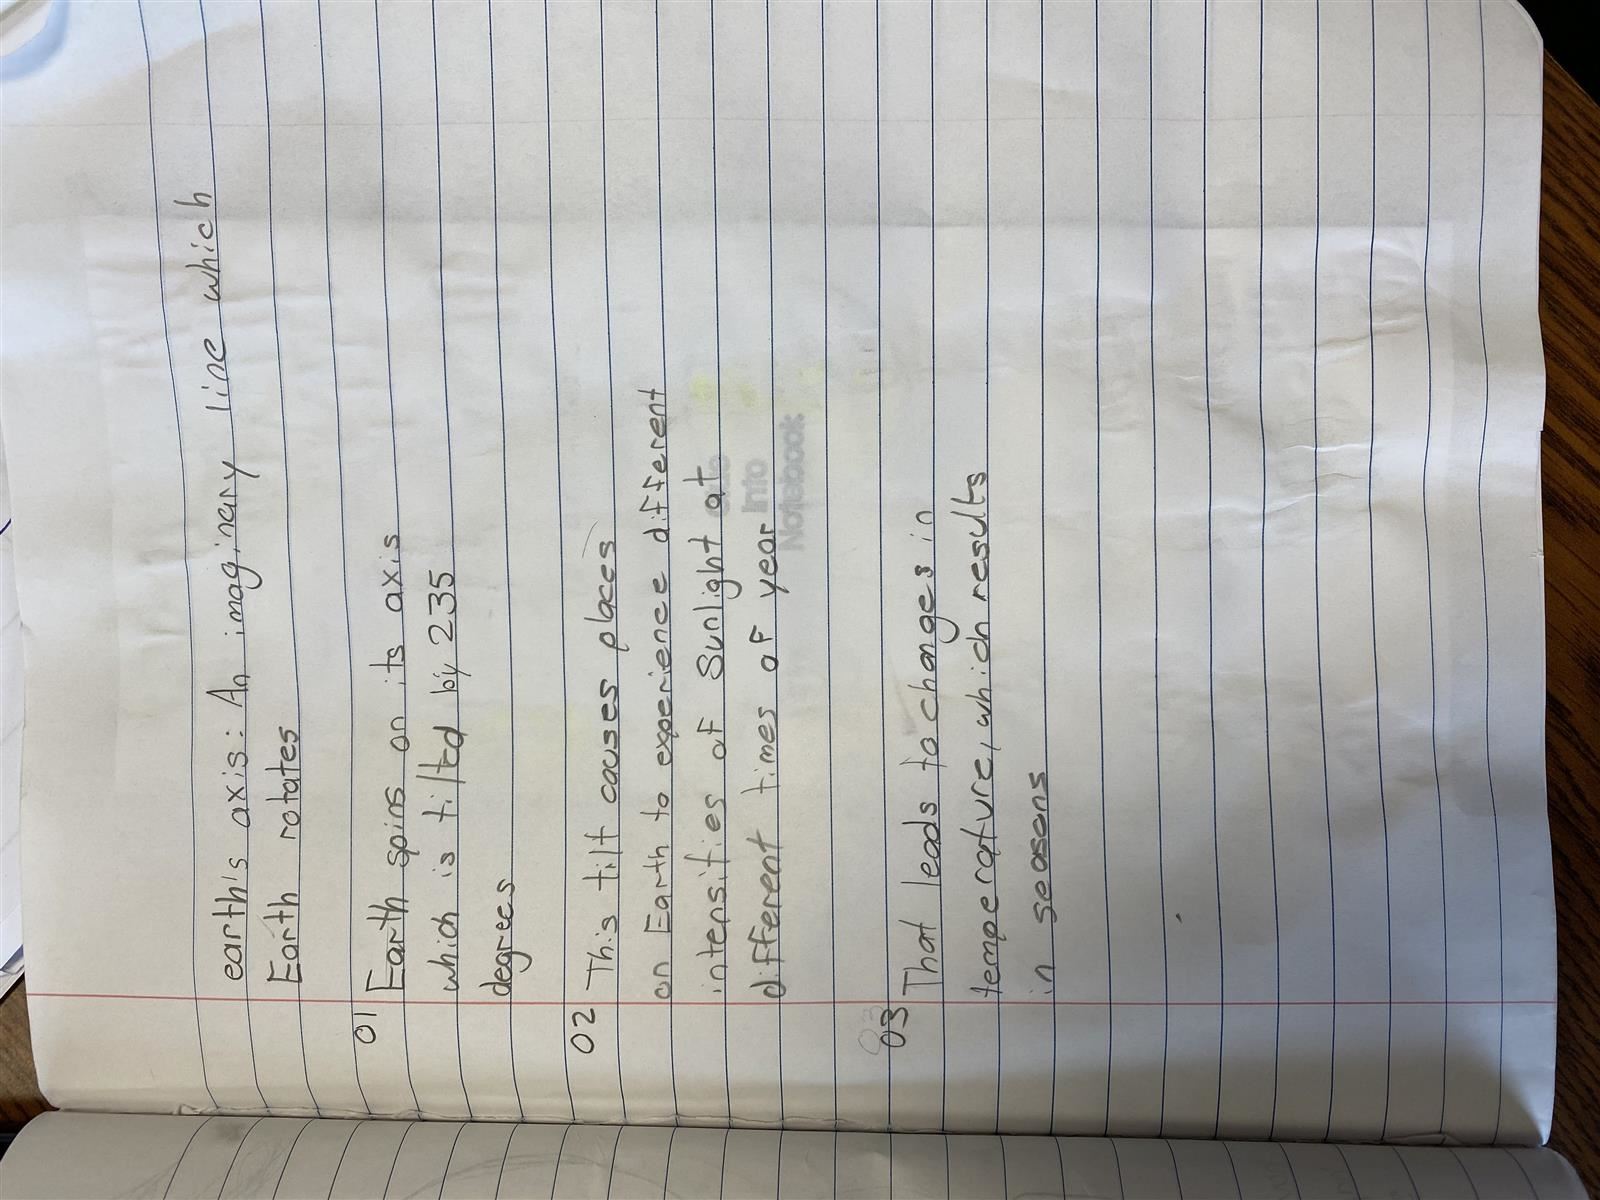 earth's axis: An imaginary line which
Earth rotates
01 Earth spins on its axis
which is tilted by 235
degrees
02 This tilt causes places
on Earth to experience different
intensities of Sunlight at
different times of year
03 That leads to changes in
temperature, which results
in seasons
into
Notebook